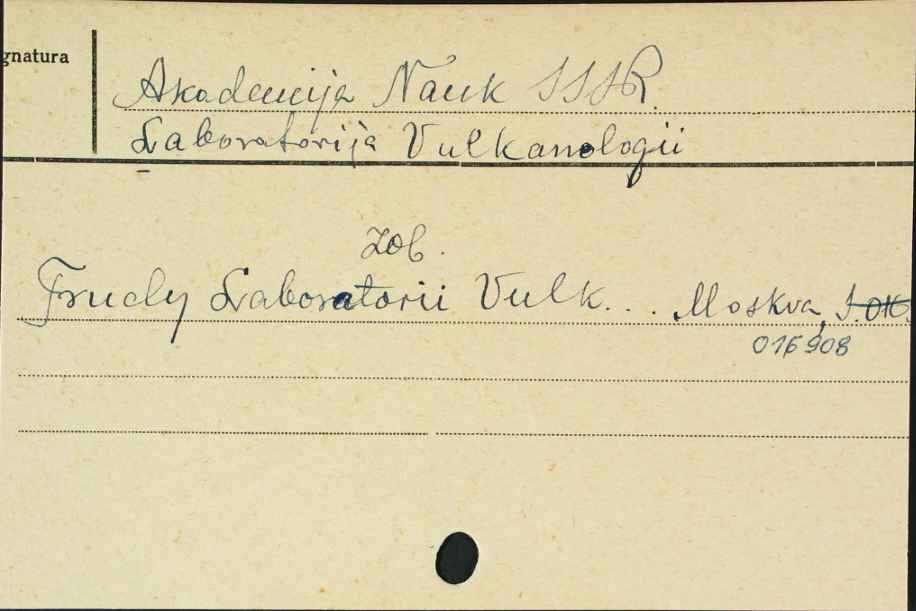 gnatura
Akademija Nauk SSSR
Laboratorija Vulkanologii
zob.
Trudy Laboratorii Vulk... Moskva,
016908